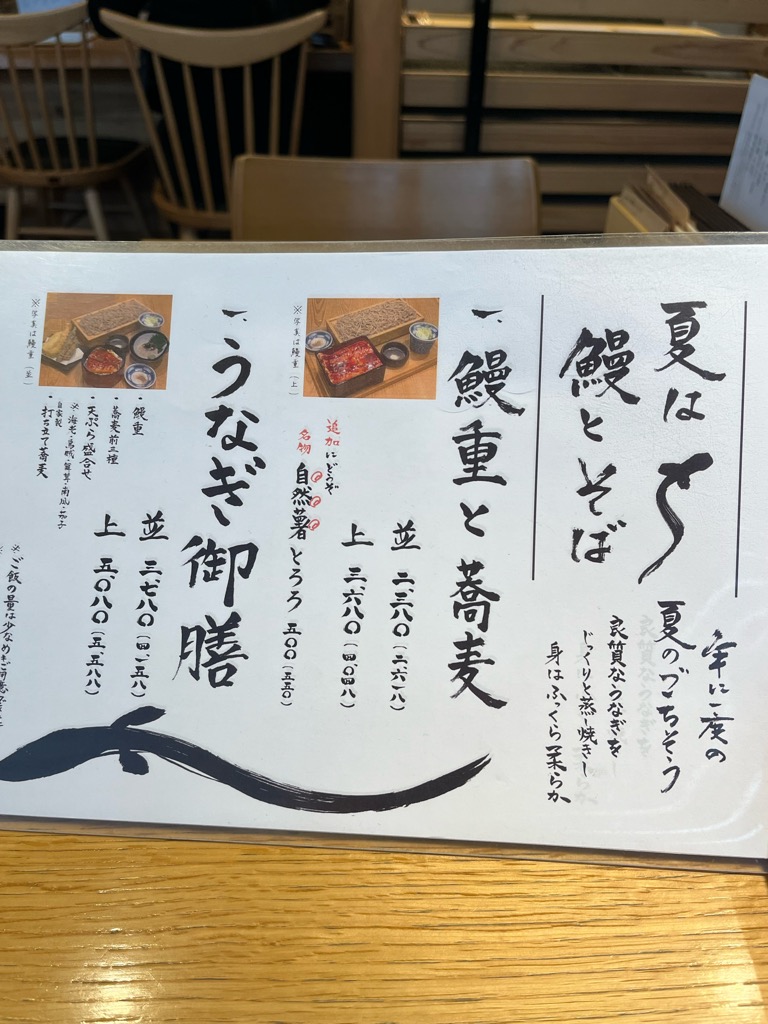 夏は
鰻とそば
年に一度の
夏のごちそう
良質なうなぎを
じっくりと蒸し焼きし
身はふっくら柔らか
一、鰻重と蕎麦
並 二、三八〇(二、六一八)
上 三、六八〇(四、〇四八)
追加にどうぞ
名物 自然薯とろろ 五〇〇(五五〇)
※写真は鰻重(上)
一、うなぎ御膳
並 三、七八〇(四、一五八)
上 五、〇八〇(五、五八八)
・鰻重
・蕎麦前三種
・天ぷら盛合せ
※海老・烏賊・舞茸・南瓜・茄子
自家製
・打ち立て蕎麦
※写真は鰻重(並)
※ご飯の量は少なめも